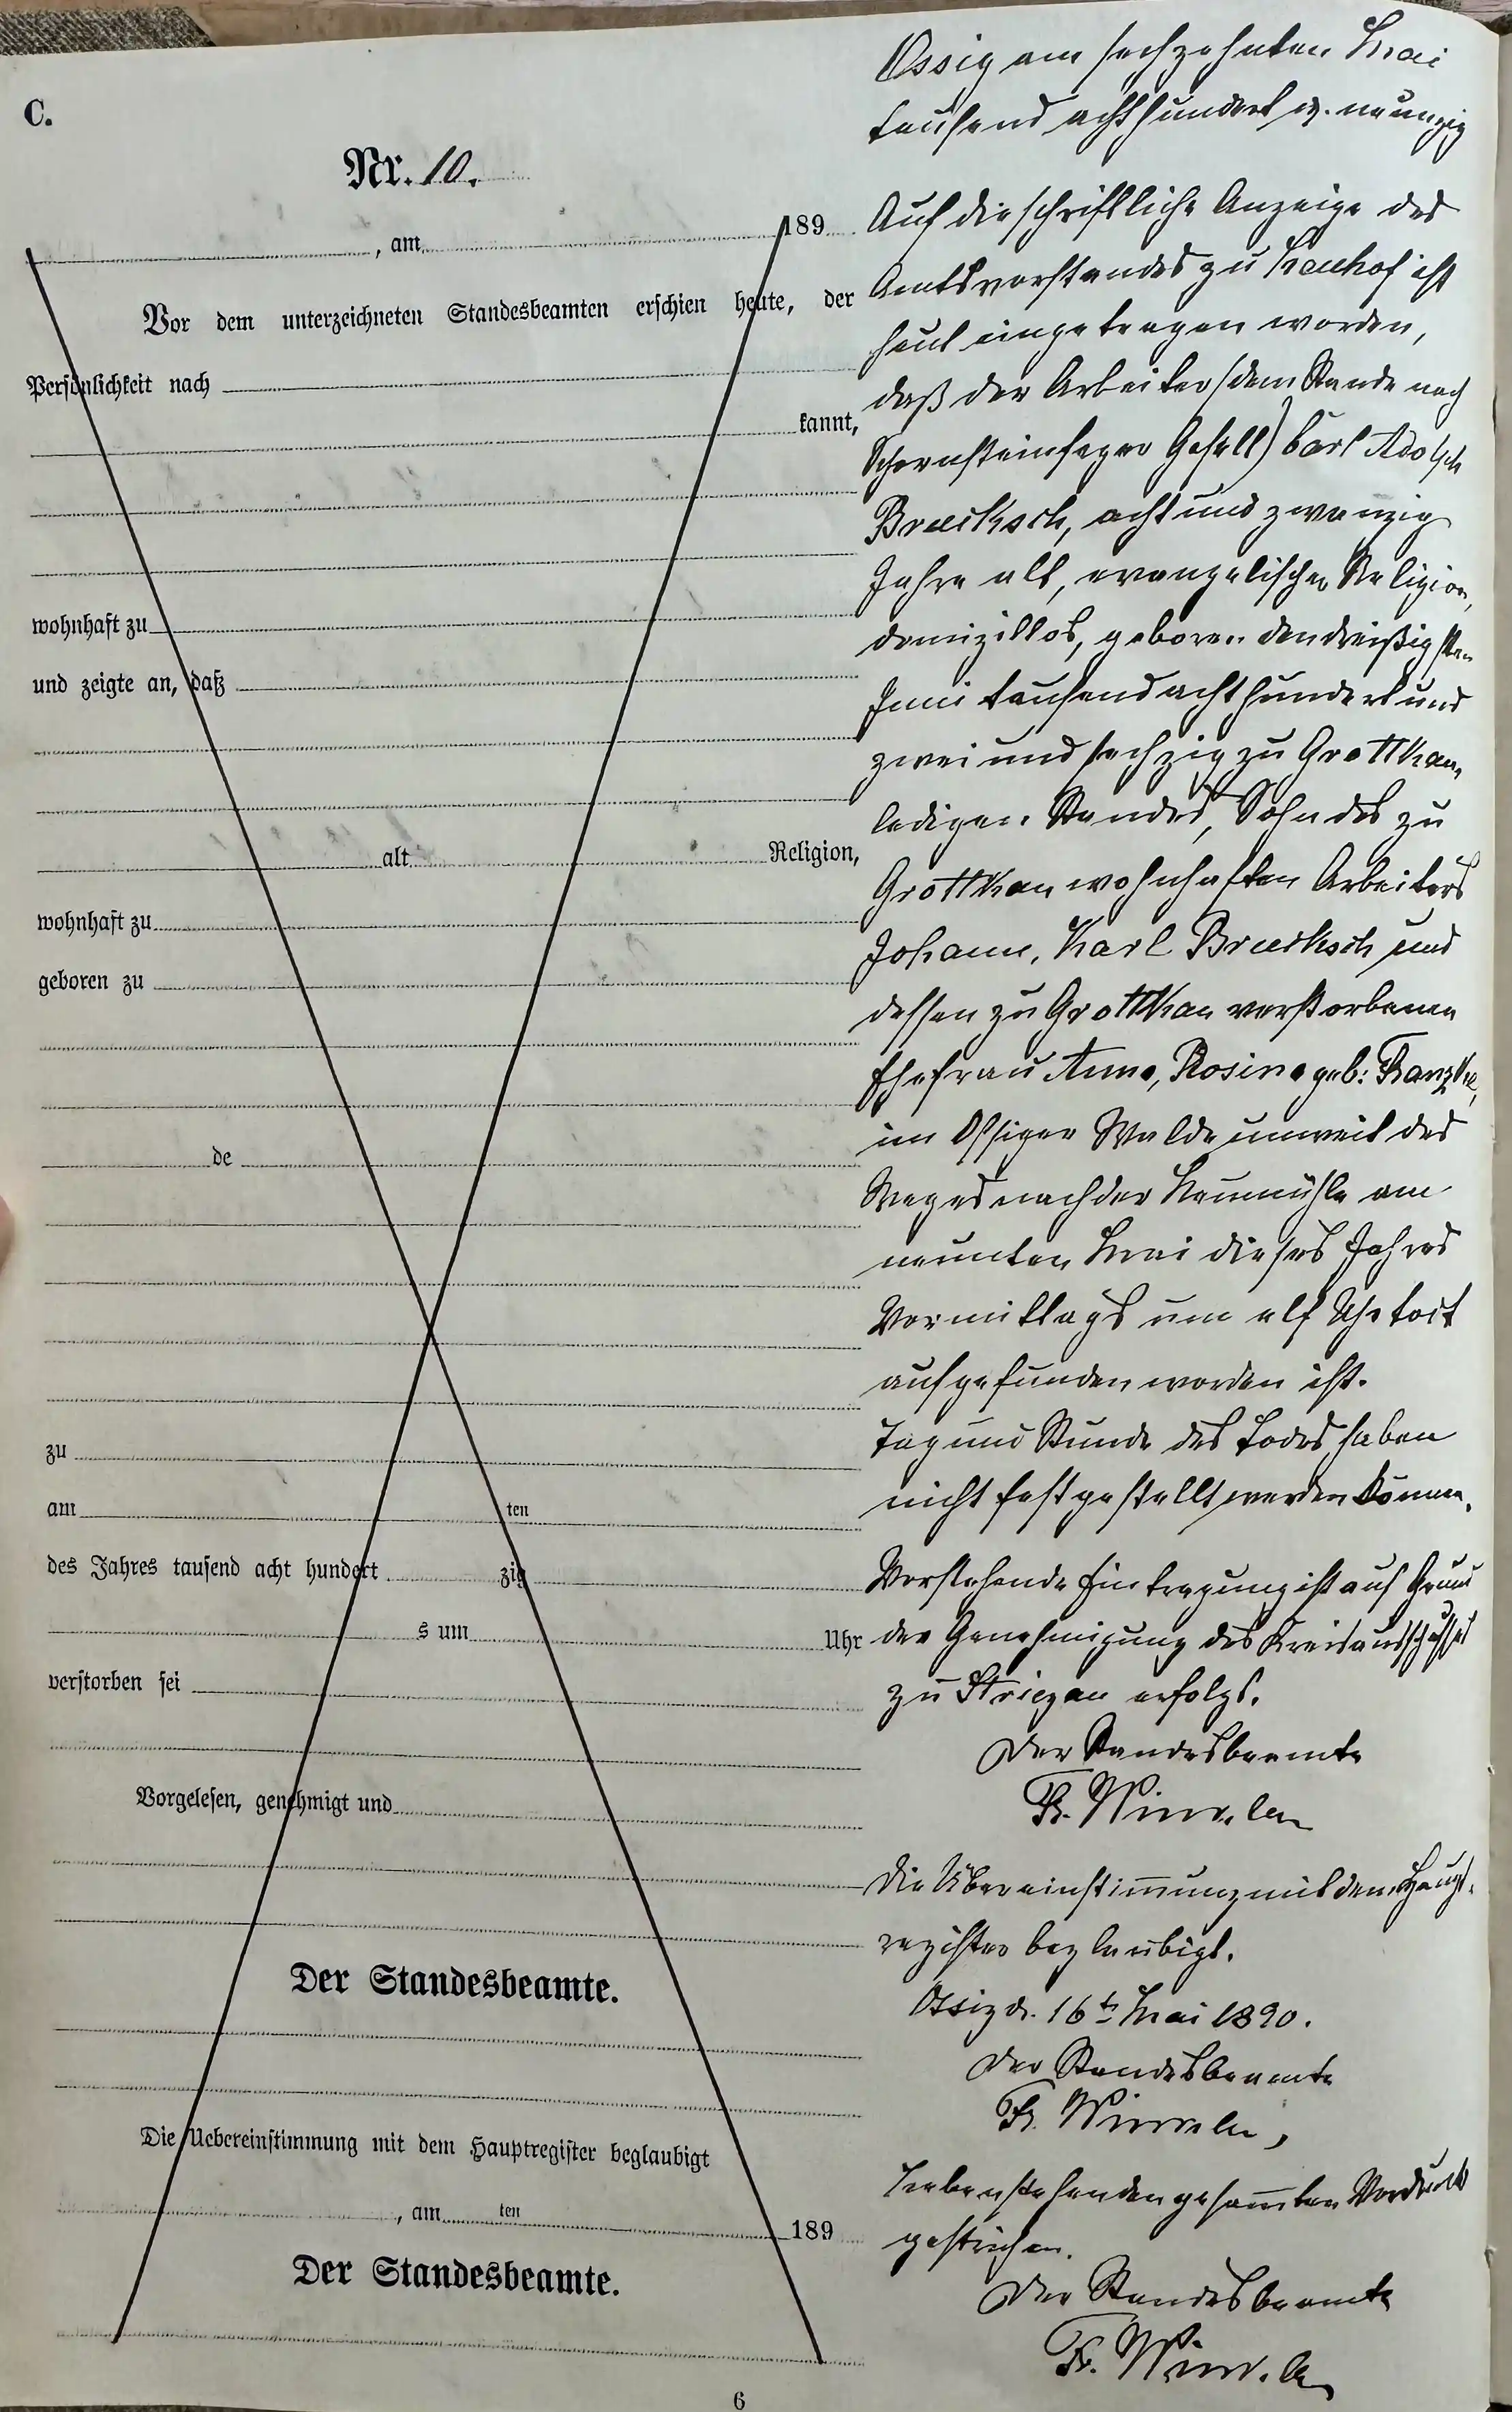 C.
Nr. 10.
, am 189
Vor dem unterzeichneten Standesbeamten erschien heute, der
Persönlichkeit nach
kannt,
wohnhaft zu
und zeigte an, daß
alt Religion,
wohnhaft zu
geboren zu
de
zu
am ten
des Jahres tausend acht hundert zig
s um Uhr
verstorben sei
Vorgelesen, genehmigt und
Der Standesbeamte.
Die Uebereinstimmung mit dem Hauptregister beglaubigt
, am ten 189
Der Standesbeamte.
6
Ossig am sechzehnten Mai
tausend achthundert u. neunzig
Auf die schriftliche Anzeige des
Amtsvorstandes zu ist
heut eingetragen worden,
daß der Arbeiter (dem Stande nach
Schornsteinfeger Gesell) Carl Adolph
Bruecksch, achtundzwanzig
Jahre alt, evangelischer Religion,
domizillos, geboren den dreißigsten
Juni tausend achthundert und
zwei und sechzig zu Grottkau,
ledigen Standes, Sohn des zu
Grottkau wohnhaften Arbeiters
Johann, Karl Bruecksch und
dessen zu Grottkau verstorbenen
Ehefrau Anna, Rosina geb: Franzke,
im Ossiger Walde unweit des
Weges nach der Neumühle am
neunten Mai dieses Jahres
Vormittags um elf Uhr todt
aufgefunden worden ist.
Tag und Stunde des Todes haben
nicht festgestellt werden können.
Vorstehende Eintragung ist auf Grund
der Genehmigung des Kreisausschusses
zu Striegau erfolgt.
Der Standesbeamte
Die Übereinstimmung mit dem Haupt-
register beglaubigt.
Ossig d. 16ten Mai 1890.
Der Standesbeamte
Nebenstehenden gesammten Vordruck
gestrichen.
Der Standesbeamte